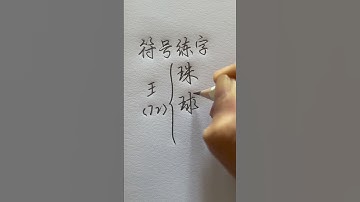 符号练字
王
(72)
珠
球